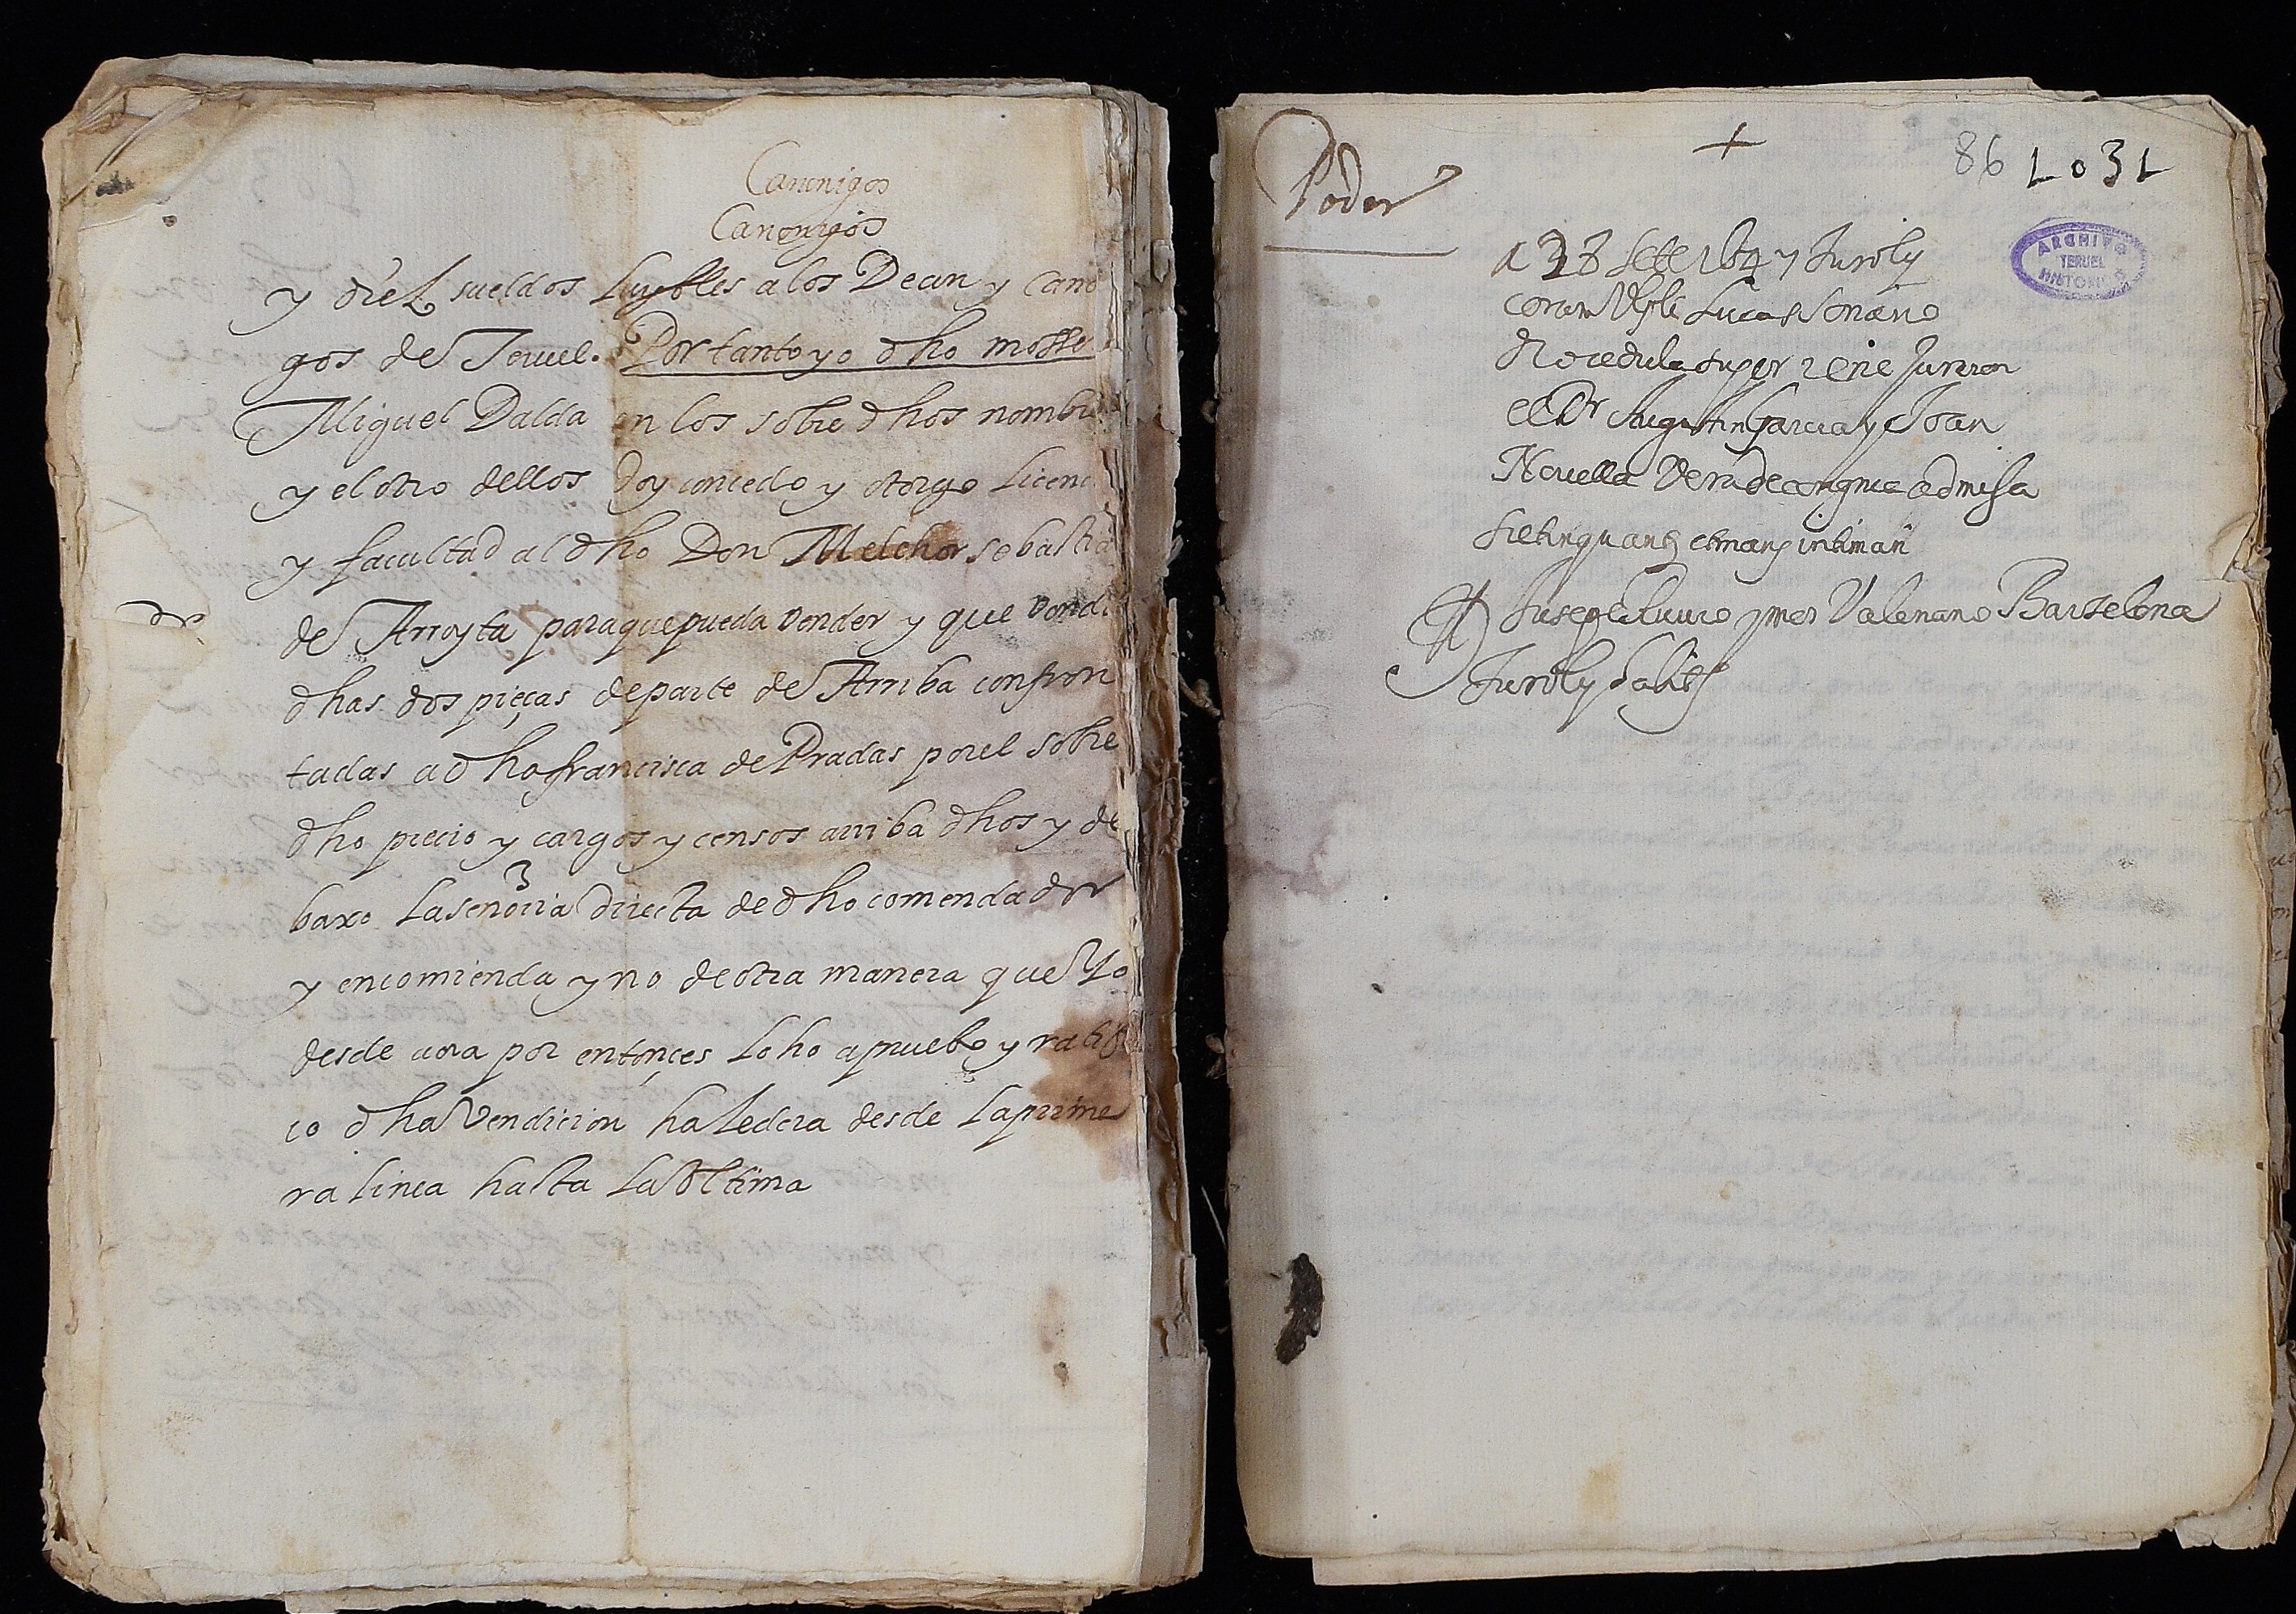 Canonigos
Canonigos
y dieZ sueldos Luybles a los Dean y cano
gos de Teruel. Por tanto yo dho mosse
Miguel Dalda en los sobre dhos nombre
y el otro dellos doy concedo y otorgo Licenc
y facultad al dho Don Melchor sebastia
de Arroyta para que pueda vender y que vendi
dhas dos pieças de parte de Arriba confron
tadas a dha francisca de Pradas por el sobre
dho precio y cargos y censos arriba dhos y de
baxo La señoria directa de dho comendador
y encomienda y no de otra manera que Yo
desde aora por entonçes Loho apruebo y ratifi
co dha Vendicion haZedera desde La prime
ra linea hasta La Vltima
Poder
86 1031
ARCHIVO
TERUEL
HISTORICO
Sete 1647 Turoly
coram Lucas Soriano
cedula super Juraron
el Dr Augustin Garcia y Joan
Novella admissa
intiman
Valeriano Barselona
Turoly